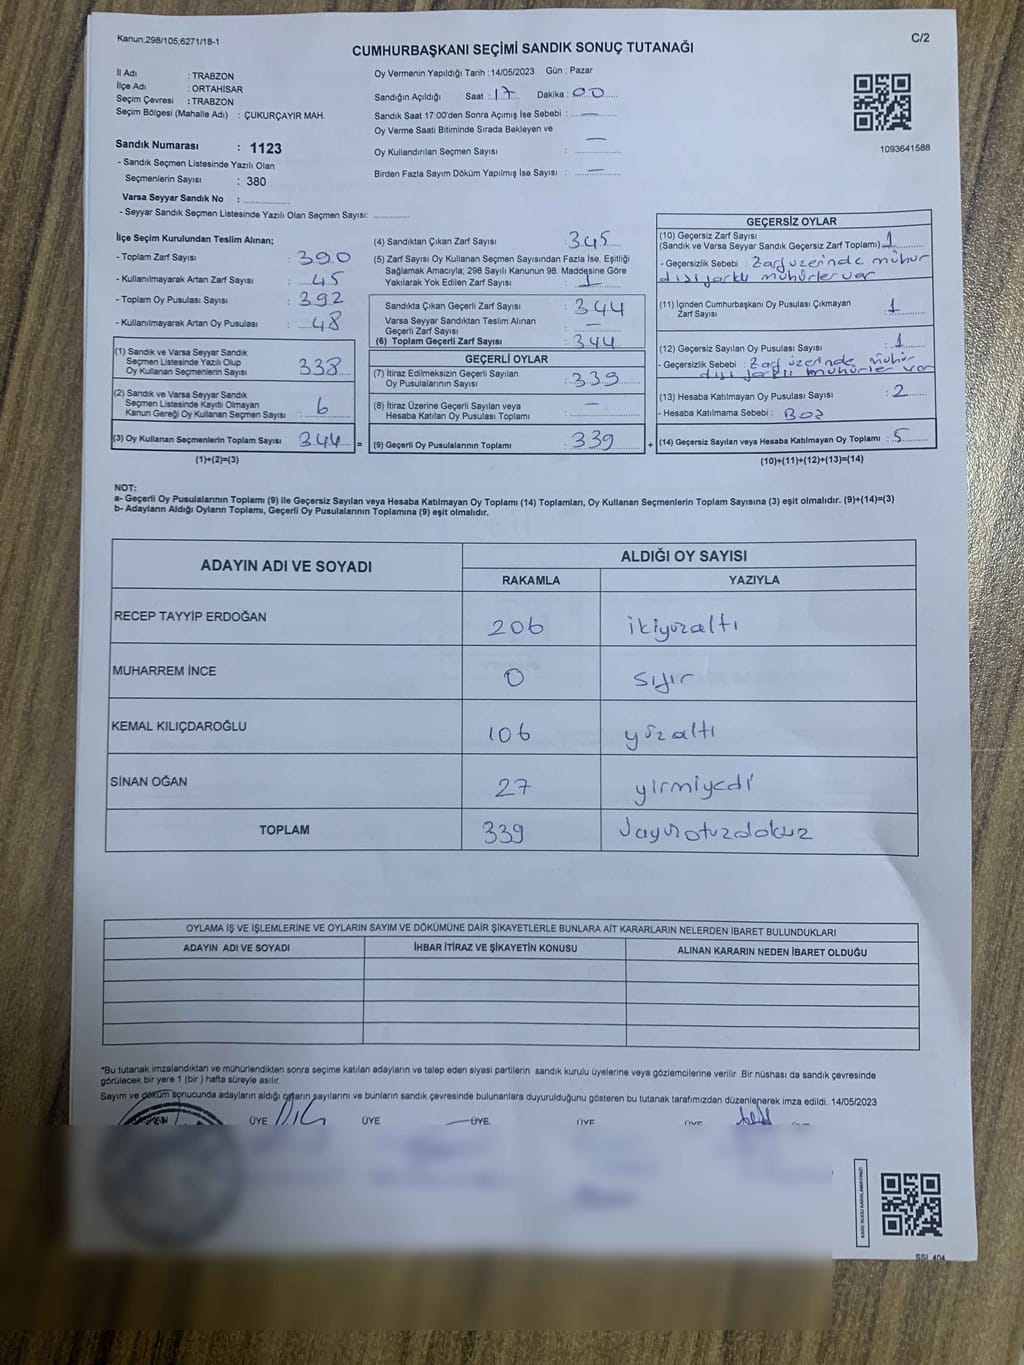 Kanun;298/105;6271/18-1
C/2
CUMHURBAŞKANI SEÇİMİ SANDIK SONUÇ TUTANAĞI
İl Adı : TRABZON
İlçe Adı : ORTAHİSAR
Seçim Çevresi : TRABZON
Seçim Bölgesi (Mahalle Adı) : ÇUKURÇAYIR MAH.
Sandık Numarası : 1123
- Sandık Seçmen Listesinde Yazılı Olan
Seçmenlerin Sayısı : 380
Varsa Seyyar Sandık No :
- Seyyar Sandık Seçmen Listesinde Yazılı Olan Seçmen Sayısı:
Oy Vermenin Yapıldığı Tarih :14/05/2023 Gün : Pazar
Sandığın Açıldığı Saat : 17 Dakika : 00
Sandık Saat 17:00'den Sonra Açımış İse Sebebi : —
Oy Verme Saati Bitiminde Sırada Bekleyen ve
Oy Kullandırılan Seçmen Sayısı : —
Birden Fazla Sayım Döküm Yapılmış İse Sayısı : —
1093641588
İlçe Seçim Kurulundan Teslim Alınan;
- Toplam Zarf Sayısı : 390
- Kullanılmayarak Artan Zarf Sayısı : 45
- Toplam Oy Pusulası Sayısı : 392
- Kullanılmayarak Artan Oy Pusulası : 48
(1) Sandık ve Varsa Seyyar Sandık
Seçmen Listesinde Yazılı Olup
Oy Kullanan Seçmenlerin Sayısı 338
(2) Sandık ve Varsa Seyyar Sandık
Seçmen Listesinde Kayıtlı Olmayan
Kanun Gereği Oy Kullanan Seçmen Sayısı : 6
(3) Oy Kullanan Seçmenlerin Toplam Sayısı 344 =
(1)+(2)=(3)
(4) Sandıktan Çıkan Zarf Sayısı : 345
(5) Zarf Sayısı Oy Kullanan Seçmen Sayısından Fazla İse, Eşitliği
Sağlamak Amacıyla; 298 Sayılı Kanunun 98. Maddesine Göre
Yakılarak Yok Edilen Zarf Sayısı : 1
Sandıkta Çıkan Geçerli Zarf Sayısı : 344
Varsa Seyyar Sandıktan Teslim Alınan
Geçerli Zarf Sayısı : —
(6) Toplam Geçerli Zarf Sayısı : 344
GEÇERLİ OYLAR
(7) İtiraz Edilmeksizin Geçerli Sayılan
Oy Pusulalarının Sayısı : 339
(8) İtiraz Üzerine Geçerli Sayılan veya
Hesaba Katılan Oy Pusulası Toplamı : —
(9) Geçerli Oy Pusulalarının Toplamı : 339 +
GEÇERSİZ OYLAR
(10) Geçersiz Zarf Sayısı
(Sandık ve Varsa Seyyar Sandık Geçersiz Zarf Toplamı) : 1
- Geçersizlik Sebebi : Zarf üzerinde mühür
dışı farklı mühürler var
(11) İçinden Cumhurbaşkanı Oy Pusulası Çıkmayan
Zarf Sayısı : 1
(12) Geçersiz Sayılan Oy Pusulası Sayısı : 1
- Geçersizlik Sebebi : Zarf üzerinde mühür
dışı farklı mühürler var
(13) Hesaba Katılmayan Oy Pusulası Sayısı : 2
- Hesaba Katılmama Sebebi : Boş
(14) Geçersiz Sayılan veya Hesaba Katılmayan Oy Toplamı : 5
(10)+(11)+(12)+(13)=(14)
NOT:
a- Geçerli Oy Pusulalarının Toplamı (9) ile Geçersiz Sayılan veya Hesaba Katılmayan Oy Toplamı (14) Toplamları, Oy Kullanan Seçmenlerin Toplam Sayısına (3) eşit olmalıdır. (9)+(14)=(3)
b- Adayların Aldığı Oyların Toplamı, Geçerli Oy Pusulalarının Toplamına (9) eşit olmalıdır.
ADAYIN ADI VE SOYADI
ALDIĞI OY SAYISI
RAKAMLA YAZIYLA
RECEP TAYYİP ERDOĞAN 206 ikiyüzaltı
MUHARREM İNCE 0 sıfır
KEMAL KILIÇDAROĞLU 106 yüzaltı
SİNAN OĞAN 27 yirmiyedi
TOPLAM 339 üçyüzotuzdokuz
OYLAMA İŞ VE İŞLEMLERİNE VE OYLARIN SAYIM VE DÖKÜMÜNE DAİR ŞİKAYETLERLE BUNLARA AİT KARARLARIN NELERDEN İBARET BULUNDUKLARI
ADAYIN ADI VE SOYADI İHBAR İTİRAZ VE ŞİKAYETİN KONUSU ALINAN KARARIN NEDEN İBARET OLDUĞU
*Bu tutanak imzalandıktan ve mühürlendikten sonra seçime katılan adayların ve talep eden siyasi partilerin sandık kurulu üyelerine veya gözlemcilerine verilir .Bir nüshası da sandık çevresinde
görülecek bir yere 1 (bir ) hafta süreyle asılır.
Sayım ve döküm sonucunda adayların aldığı oyların sayılarını ve bunların sandık çevresinde bulunanlara duyurulduğunu gösteren bu tutanak tarafımızdan düzenlenerek imza edildi. 14/05/2023
ÜYE ÜYE ÜYE ÜYE ÜYE